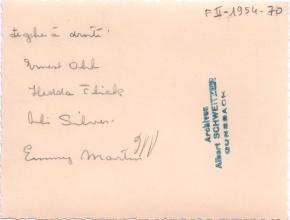 F II-1954-70
de gche à droite :
Ernest
Hedda
Ali Silver
Emmy Martin
Archives
Albert SCHWEITZER
GUNSBACH